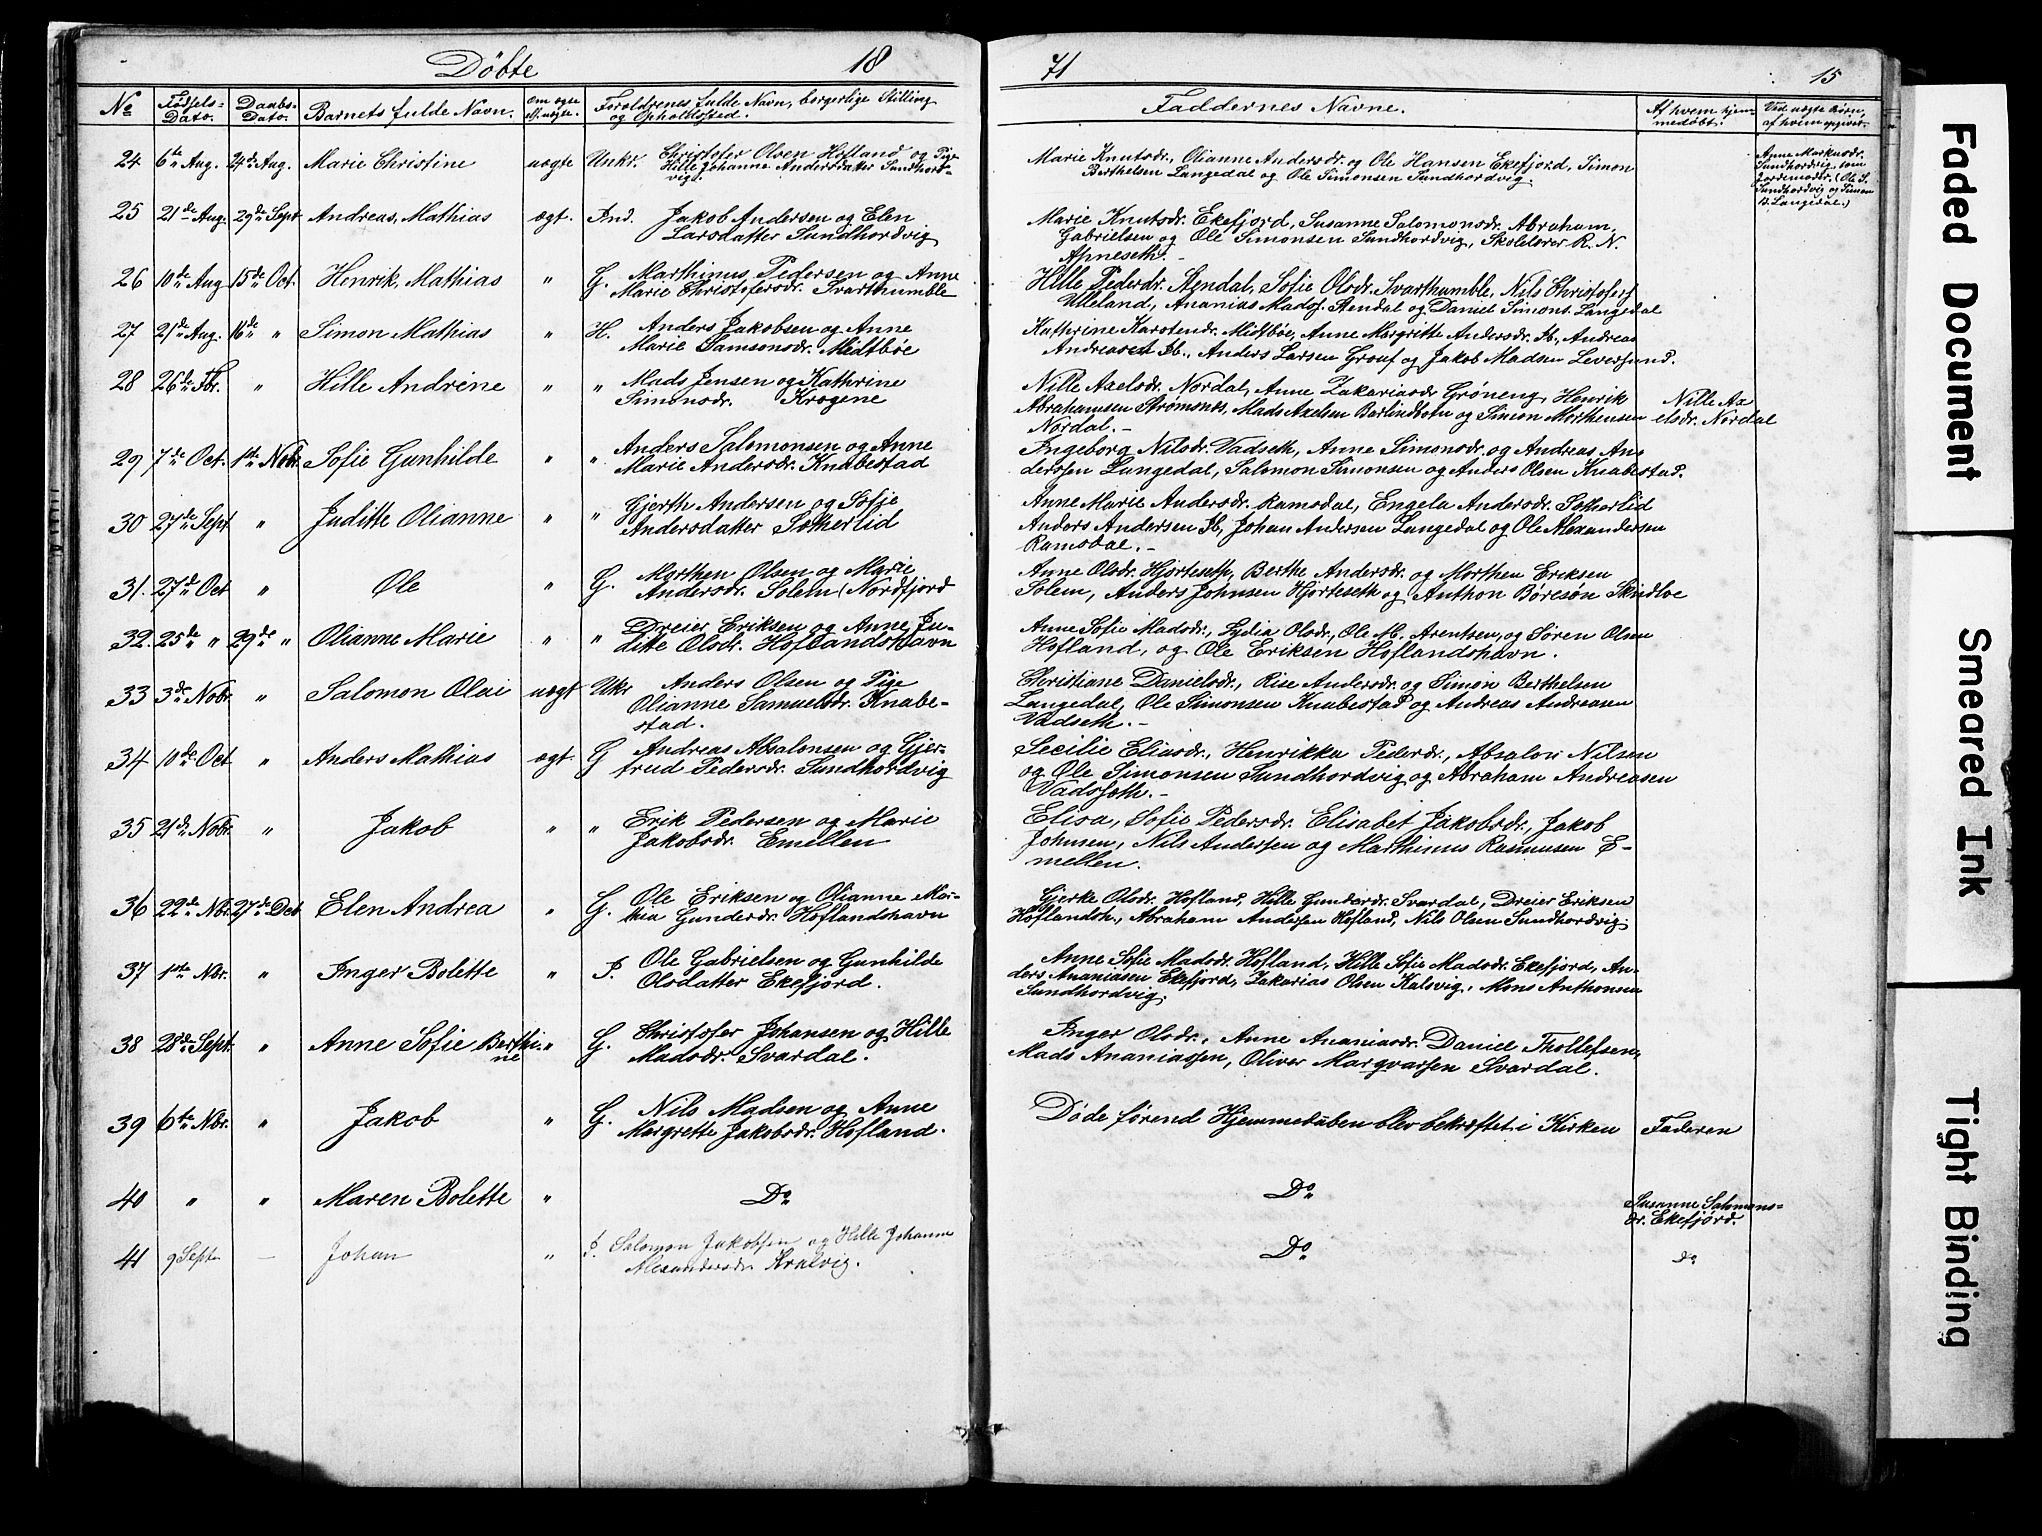 Døbte 18
71 15
№ Fødsels-Dato. Daabs-Dato. Barnets fulde Navn. Om ægte el. uægte. Forældrenes fulde Navn, borgerlige Stilling og Opholdssted. Faddernes Navne. Af hvem hjemmedøbt. Ved uægte Børn, af hvem opgivet.
24 6te Aug. 24de Aug. Marie Christine uægte Unkr. Christofer Olsen Hofland og Pige
Hille Johanne Andersdatter Sundhord-
vig.
Marie Knutsdr., Olianne Andersdr og Ole Hansen Ekefjord, Simon
Berthelsen Langedal og Ole Simonsen Sundhordvig.
Anne Markusdr.
Sundhordvig, som
Jordemodr. (Ole S.
Sundhordvig og Simon
B. Langedal.)
25 21de Aug. 29de Sept Andreas Mathias ægt. Ind. Jakob Andersen og Elen
Larsdatter Sundhordvig
Marie Knutsdr. Ekefjord, Susanne Salomonsdr. Abraham
Gabrielsen og Ole Simonsen Sundhordvig, Skolelærer R. N.
Apneseth. -
26 10de Aug 15de Oct. Henrik Mathias " G. Marthinus Pedersen og Anne
Marie Christofersdr. Svarthumble
Hille Pedersdr. Stendal, Sofie Olsdr. Svarthumble, Nils Christofers
Ulleland, Ananias Mads. Stendal og Daniel Simons. Langedal
27 21de Aug. 16de " Simon Mathias " H. Anders Jakobsen og Anne
Marie Samsonsdr. Midtbøe
Kathrine Karstendr. Midtbøe, Anne Margritte Andersdr. Ib., Andreas
Andreasen Ib., Anders Larsen Grouf og Jakob Madsen Leversund.
28 26de Fbr. " Hille Andrine " " Mads Jensen og Kathrine
Simonsdr. Krogene
Nille Axelsdr. Nordal, Anne Zakariasdr Grøneng, Henrik
Abrahamsen Strømsnes, Mads Axelsen Berlindbotn og Simon Morthensen
Nordal. -
Nille Ax
elsdr. Nordal
29 7de Oct. 1ste Nobr. Sofie Gunhilde " " Anders Salomonsen og Anne
Marie Andersdr. Knabestad
Ingeborg Nilsdr. Vadseth, Anne Simonsdr. og Andreas An-
derssen Langedal, Salomon Simonsen og Anders Olsen Knabestad.
30 27de Sept. " Juditte Olianne " " Gjerth Andersen og Sofie
Andersdatter Sotherlid
Anne Marie Andersdr. Ramsdal, Engela Andersdr. Sotherlid
Anders Andersen Ib., Johan Andersen Langedal og Ole Alexandersen
Ramsdal. -
31. 27de Oct " Ole " G. Morthen Olsen og Marie
Andersdr. Solem (Nordfjord
Anne Olsdr. Hjorteseth, Berthe Andersdr. og Morthen Eriksen
Solem, Anders Johnsen Hjorteseth og Anthon Børesøn Skudløe
32. 25de " 29de " Olianne Marie " " Dreier Eriksen og Anne Ju-
ditte Olsdr. Hoflandshavn
Anne Sofie Madsdr., Lydia Olsdr., Ole M. Arentsen, og Søren Olsen
Hofland, og Ole Eriksen Hoflandshavn.
33 3de Nobr. " Salomon Olai uægt Ukr Anders Olsen og Pige
Olianne Samuelsdr. Knabe-
stad.
Christiane Danielsdr., Rise Andersdr. og Simon Berthelsen
Langedal, Ole Simonsen Knabestad og Andreas Andreasen
Vadseth. -
34 10de Oct " Anders Mathias ægt. G Andreas Absalonsen og Gjer-
trud Pedersdr. Sundhordvig
Secilie Eliasdr., Henrikka Pedersdr., Absalon Nilsen
og Ole Simonsen Sundhordvig og Abraham Andreasen
Vadseth. -
35 21de Nobr. " Jakob " " Erik Pedersen og Marie
Jakobsdr. Emellen
Elisa, Sofie Pedersdr. Elisabet Jakobsdr., Jakob
Johnsen, Nils Anderssen og Marthinus Rasmusen E-
mellen.
36 22de Nbr. 27de Dec Elen Andrea " G. Ole Eriksen og Olianne Ma-
thea Gundersdr. Hoflandshavn
Gjerke Olsdr. Hofland, Hille Gundersdr. Svardal, Dreier Eriksen
Hoflandsh., Abraham Andersen Hofland, Nils Olsen Sundhordvig.
37 1ste Nbr. " Inger Bolette " I. Ole Gabrielsen og Gunhilde
Olsdatter Ekefjord.
Anne Sofie Madsdr. Hofland, Hille Sofie Madsdr. Ekefjord, An-
ders Ananiasen Ekefjord, Zakarias Olsen Kalsvig, Mons Anthonsen
Sundhordvig.
38 28de Sept. " Anne Sofie Berthi-
ne " G. Christofer Johansen og Hille
Madsdr. Svardal.
Inger Olsdr., Anne Ananiasdr. Daniel Thollefsen,
Mads Ananiassen, Oliver Margvarsen Svardal.
39 6te Nbr. " Jakob " G. Nils Madsen og Anne
Margrette Jakobsdr. Hofland.
Døde førend Hjemmedaaben blev bekræftet i Kirken Faderen
40 " " Maren Bolette " Do Do Susanne Salomons-
dr. Ekefjord.
41 9 Sept. — Johan " I. Salomon Jakobsen og Hille Johanne
Alexandersdr. Kvalvig.
Do do
Faded Document
Smeared Ink
Tight Binding